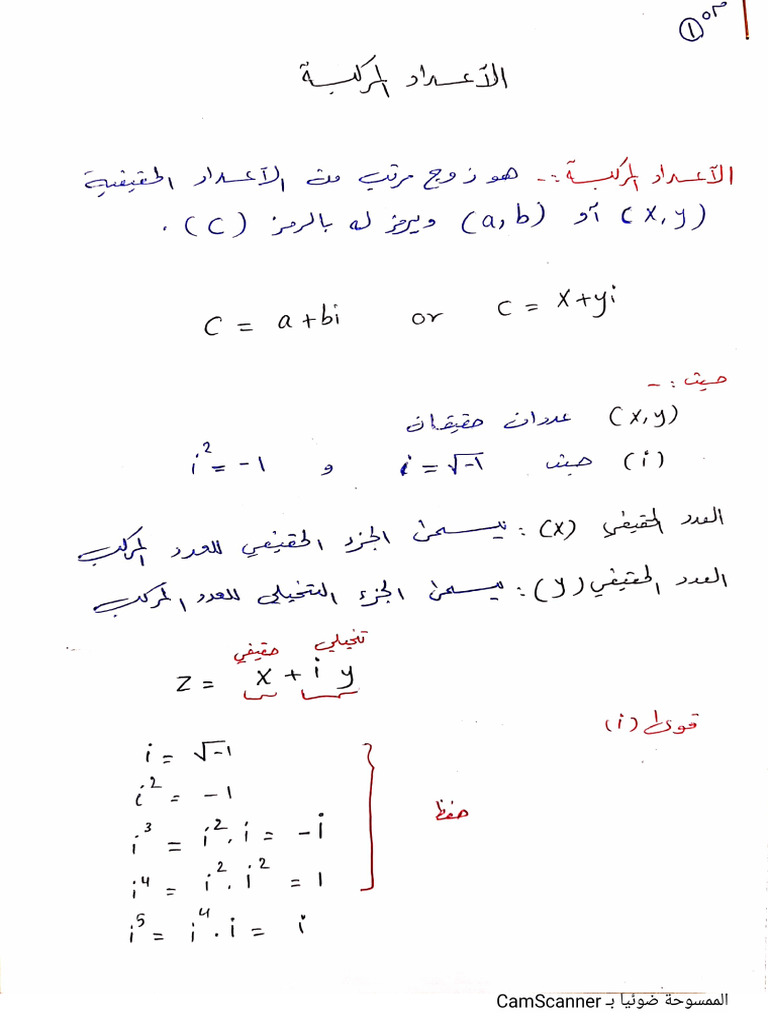 ص ①
الأعداد المركبة
الأعداد المركبة :- هو زوج مرتب من الأعداد الحقيقية
(x,y) أو (a,b) ويرمز له بالرمز (C) .
C = a+bi or C = x+yi
حيث :-
(x,y) عددان حقيقان
(i) حيث i = √-1 و i² = -1
العدد الحقيقي (x) : يسمى الجزء الحقيقي للعدد المركب
العدد الحقيقي (y) : يسمى الجزء التخيلي للعدد المركب
حقيقي تخيلي
Z = x + i y
قوى (i)
i = √-1
i² = -1
i³ = i² . i = -i
حفظ
i⁴ = i² . i² = 1
i⁵ = i⁴ . i = i
الممسوحة ضوئيا بـ CamScanner